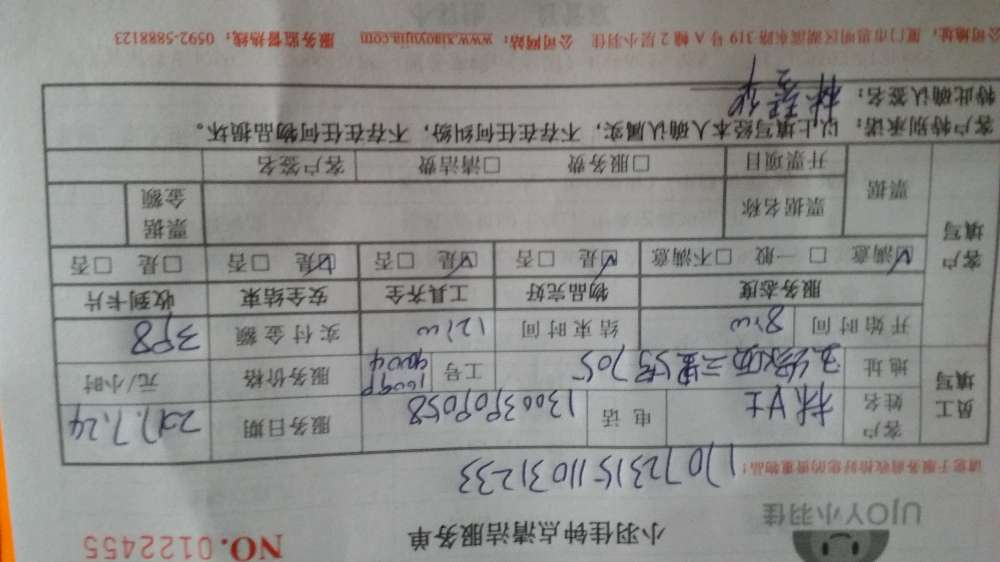 UJOY小羽佳
小羽佳钟点清洁服务单
NO.0122455
请您于服务前收拾好您的贵重物品!
1707231511031233
员工填写
客户姓名 林女士 电话 13003909058 服务日期 2017.7.24
地址 三里55号705 工号 服务价格 元/小时
开始时间 8:00 结束时间 12:00 实付金额 398
客户填写
服务态度 物品完好 工具齐全 安全结束 收到卡片
☑满意 □一般 □不满意 ☑是 □否 ☑是 □否 ☑是 □否 □是 □否
票据 票据名称 票据金额
开票项目 □服务费 □清洁费 客户签名
客户特别承诺:以上填写经本人确认属实,不存在任何纠纷,不存在任何物品损坏。
特此确认签名:
公司地址:厦门市思明区湖滨东路319号A幢2层小羽佳 公司网站:www.xiaoyujia.com 服务监督热线:0592-5888123